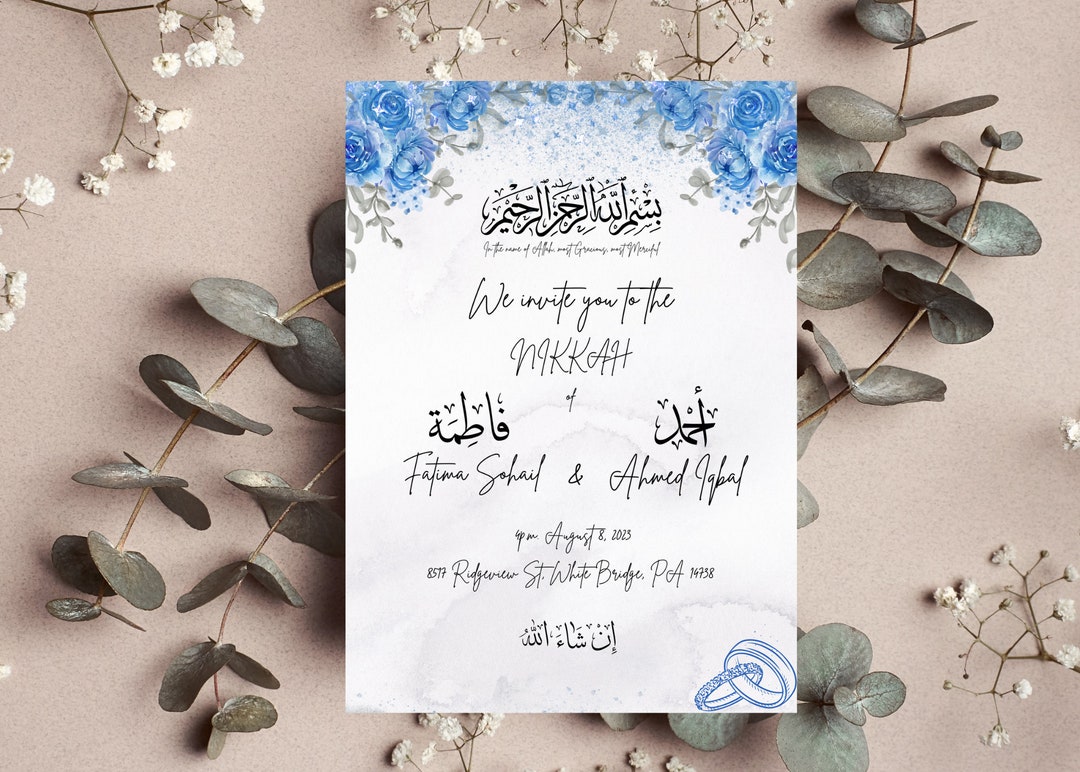 بِسْمِ اللَّهِ الرَّحْمَٰنِ الرَّحِيمِ
In the name of Allah, most Gracious, most Merciful
We invite you to the
NIKKAH
of
فَاطِمَة أَحْمَد
Fatima Sohail & Ahmed Iqbal
4pm. August 8, 2023
8517 Ridgeview St, White Bridge, PA 14738
إِنْ شَاءَ اللَّهُ